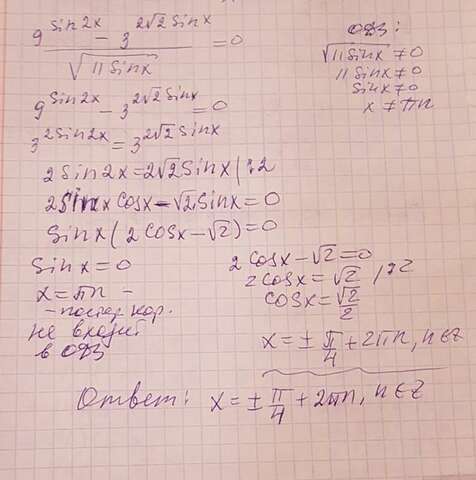 9^(sin2x) − 3^(2√2 sinx) / √(11 sinx) = 0
ОДЗ:
√(11 sinx) ≠ 0
11 sinx ≠ 0
sinx ≠ 0
x ≠ πn
9^(sin2x) − 3^(2√2 sinx) = 0
3^(2sin2x) = 3^(2√2 sinx)
2sin2x = 2√2 sinx | :2
2sinx cosx − √2 sinx = 0
sinx(2cosx − √2) = 0
sinx = 0
x = πn −
− постор. кор.
не входит
в ОДЗ
2cosx − √2 = 0
2cosx = √2 / :2
cosx = √2/2
x = ± π/4 + 2πn, n ∈ Z
Ответ: x = ± π/4 + 2πn, n ∈ Z